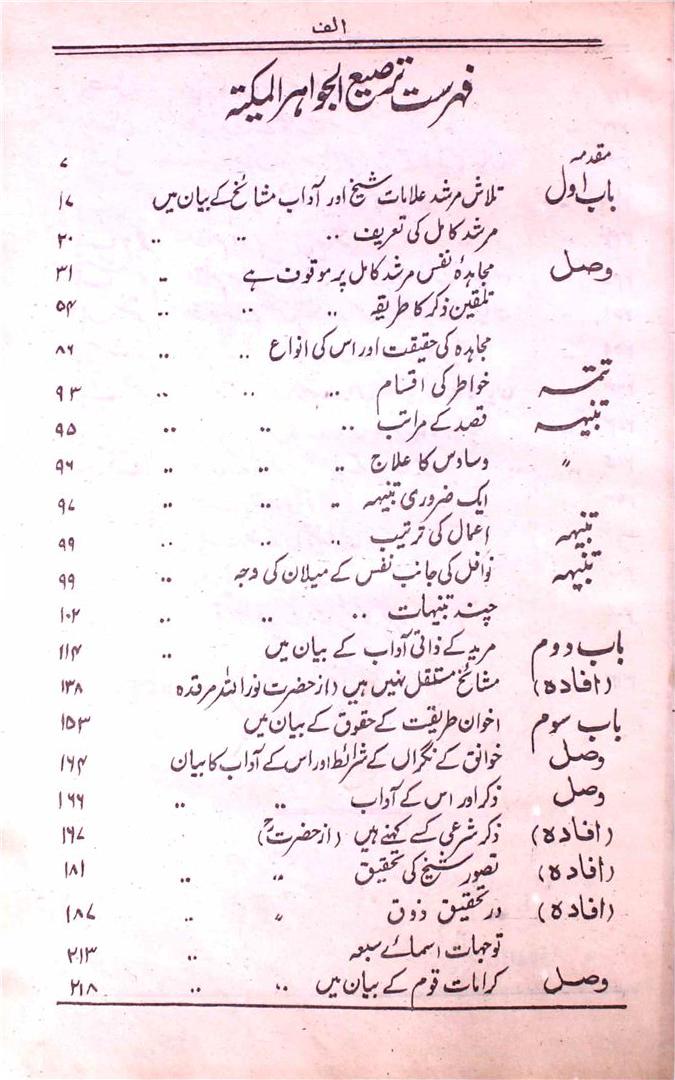 الف
فہرست ترصیع الجواہر المکیتہ
مقدمہ ۷
باب اول تلاش مرشد علامات شیخ اور آداب مشائخ کے بیان میں ۱۷
مرشد کامل کی تعریف .. .. .. ۲۰
وصل مجاہدۂ نفس مرشد کامل پر موقوف ہے .. ۳۱
تلقین ذکر کا طریقہ .. .. .. ۵۴
مجاہدہ کی حقیقت اور اس کی انواع .. .. ۸۶
تتمہ خواطر کی اقسام .. .. .. ۹۳
تنبیہہ قصد کے مراتب .. .. .. ۹۵
〃 وساوس کا علاج .. .. .. ۹۶
ایک ضروری تنبیہہ .. .. .. ۹۷
تنبیہہ اعمال کی ترتیب .. .. .. ۹۹
تنبیہہ نوافل کی جانب نفس کے میلان کی وجہ .. ۹۹
چند تنبیہات .. .. .. ۱۰۲
باب دوم مرید کے ذاتی آداب کے بیان میں .. ۱۱۴
(افادہ) مشائخ مستقل نہیں ہیں (از حضرت نور اللہ مرقدہ ۱۳۸
باب سوم اخوان طریقت کے حقوق کے بیان میں ۱۵۳
وصل خوانق کے نگراں کے شرائط اور اس کے آداب کا بیان ۱۶۴
وصل ذکر اور اس کے آداب .. .. ۱۶۶
(افادہ) ذکر شرعی کسے کہتے ہیں (از حضرتؒ) ۱۶۷
(افادہ) تصور شیخ کی تحقیق 〃 .. ۱۸۱
(افادہ) در تحقیق ذوق 〃 .. ۱۸۷
توجہات اسمائے سبعہ .. ۲۱۳
وصل کرامات قوم کے بیان میں .. .. ۲۱۸